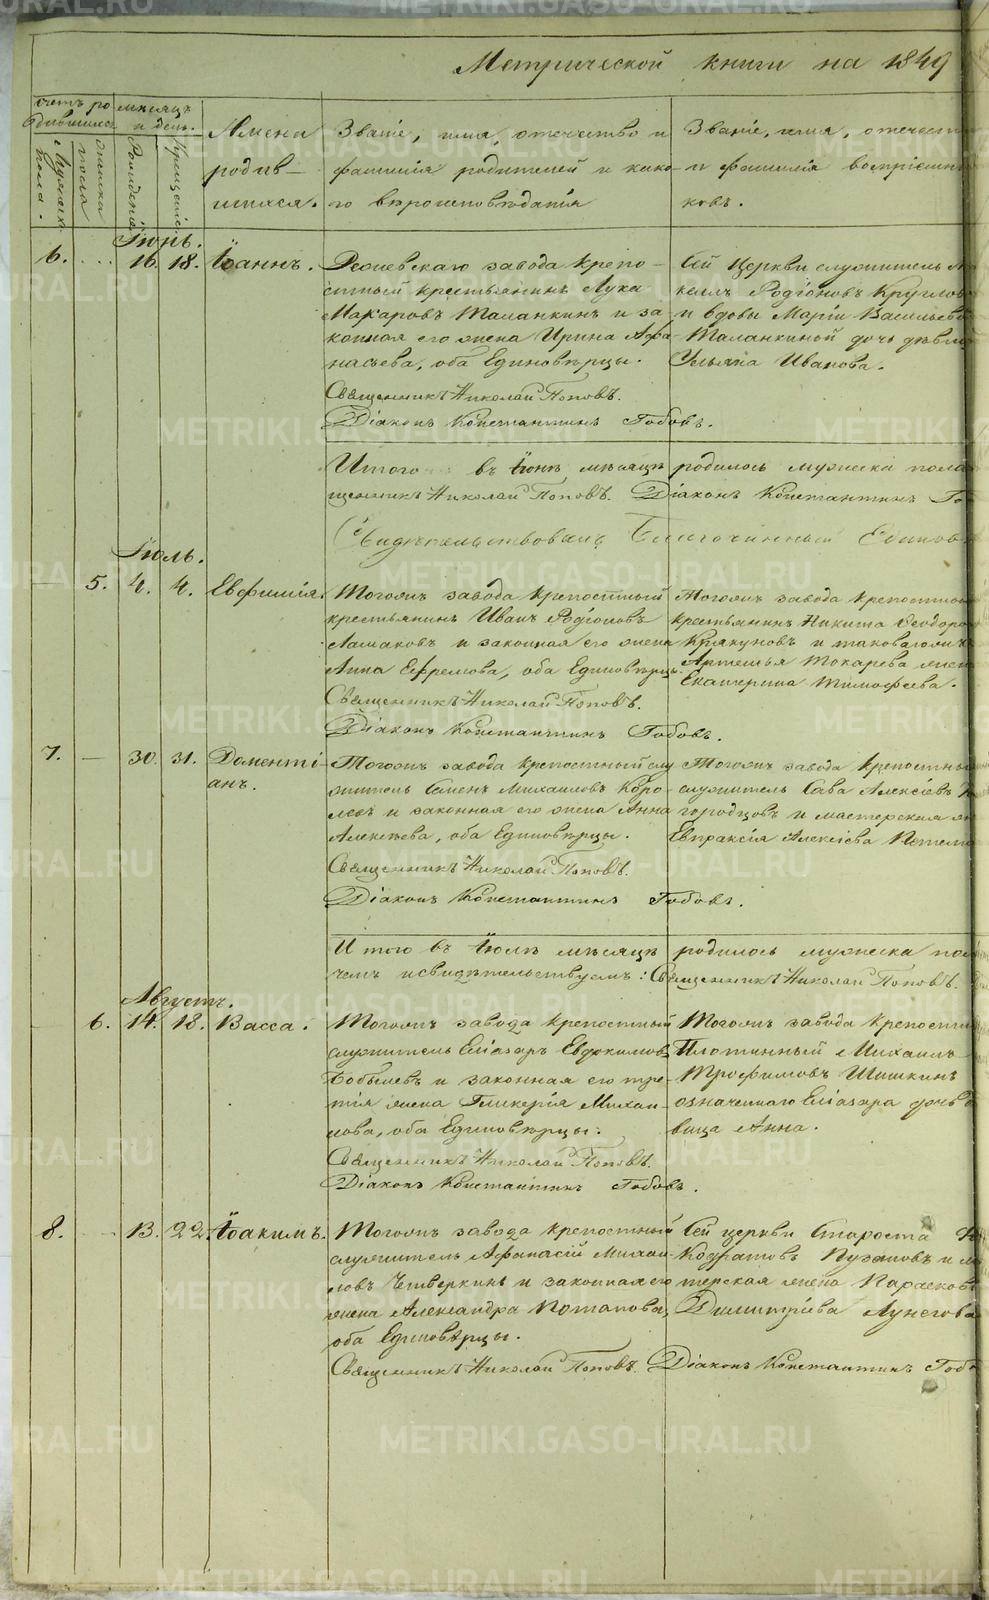 Метрической книги на 1849
счетъ ро
дившихся
мѣсяцъ
и день.
Мужеска
пола.
женска
пола
Рожденія
Крещенія.
Имена
родив-
шихся.
Званіе, имя, отечество и
фамилія родителей и како-
го вѣроисповѣданія
Званіе, имя, отечест
и фамилія воспріемни
ковъ.
Іюнь.
6. ... 16. 18. Іоаннъ.
Режевскаго завода крѣпо-
стный крестьянинъ Лука
Макаровъ Таланкинъ и за
конная его жена Ирина Афа
насьева, оба Единовѣрцы.
Священникъ Николай Поповъ.
Діаконъ Константинъ Гобовъ.
Сей Церкви служитель
Родіоновъ Кругло
и вдовы Маріи Васильево
Таланкиной дочь дѣви
Ульяна Иванова.
Итого въ Іюнѣ мѣсяцѣ родилось мужеска пола
щенникъ Николай Поповъ. Діаконъ Константинъ Го
Свидѣтельствовалъ Благочинный Единов
Іюль.
5. 4. 4. Евфимія.
Тогожъ завода крѣпостный
крестьянинъ Иванъ Родіоновъ
Ламаковъ и законная его жена
Анна Ефремова, оба Единовѣрцы.
Священникъ Николай Поповъ.
Діаконъ Константинъ Гобовъ.
Тогожъ завода крѣпостно
крестьянинъ Никита Ѳеодоро
Крякуновъ и таковагожъ
Артемья Токарева жен
Екатерина Тимофеева.
7. — 30. 31. Доментi-
анъ.
Тогожъ завода крѣпостный слу
житель Семенъ Михаиловъ Коро
левъ и законная его жена Анна
Алексѣева, оба Единовѣрцы.
Священникъ Николай Поповъ.
Діаконъ Константинъ Гобовъ.
Тогожъ завода крѣпостны
служитель Сава Алексіевъ
городцовъ и мастерская
Евпраксія Алексіева Потеми
Итого въ Іюлѣ мѣсяцѣ родилось мужеска по
чемъ и свидѣтельствуемъ: Священникъ Николай Поповъ.
Августъ.
6. 14. 18. Васса.
Тогожъ завода крѣпостный
служитель Еліазаръ Евдокимовъ
Бобылевъ и законная его тре-
тія жена Гликерія Михаи-
лова, оба Единовѣрцы.
Священникъ Николай Поповъ.
Діаконъ Константинъ Гобовъ.
Тогожъ завода крѣпостн
Плотинный Михаилъ
Трофимовъ Шишкинъ
означеннаго Еліазара дочь д
вица Анна.
8. 13. 22. Іоакимъ.
Тогожъ завода крѣпостный
служитель Афанасій Михаи
ловъ Четверкинъ и законная его
жена Александра Потапова,
оба Единовѣрцы.
Священникъ Николай Поповъ. Діаконъ Константинъ Гобо
Сей церкви Староста
Кодратовъ Пузановъ и ма
терская жена Парасков
Димитріева Лунегова
METRIKI.GASO-URAL.RU